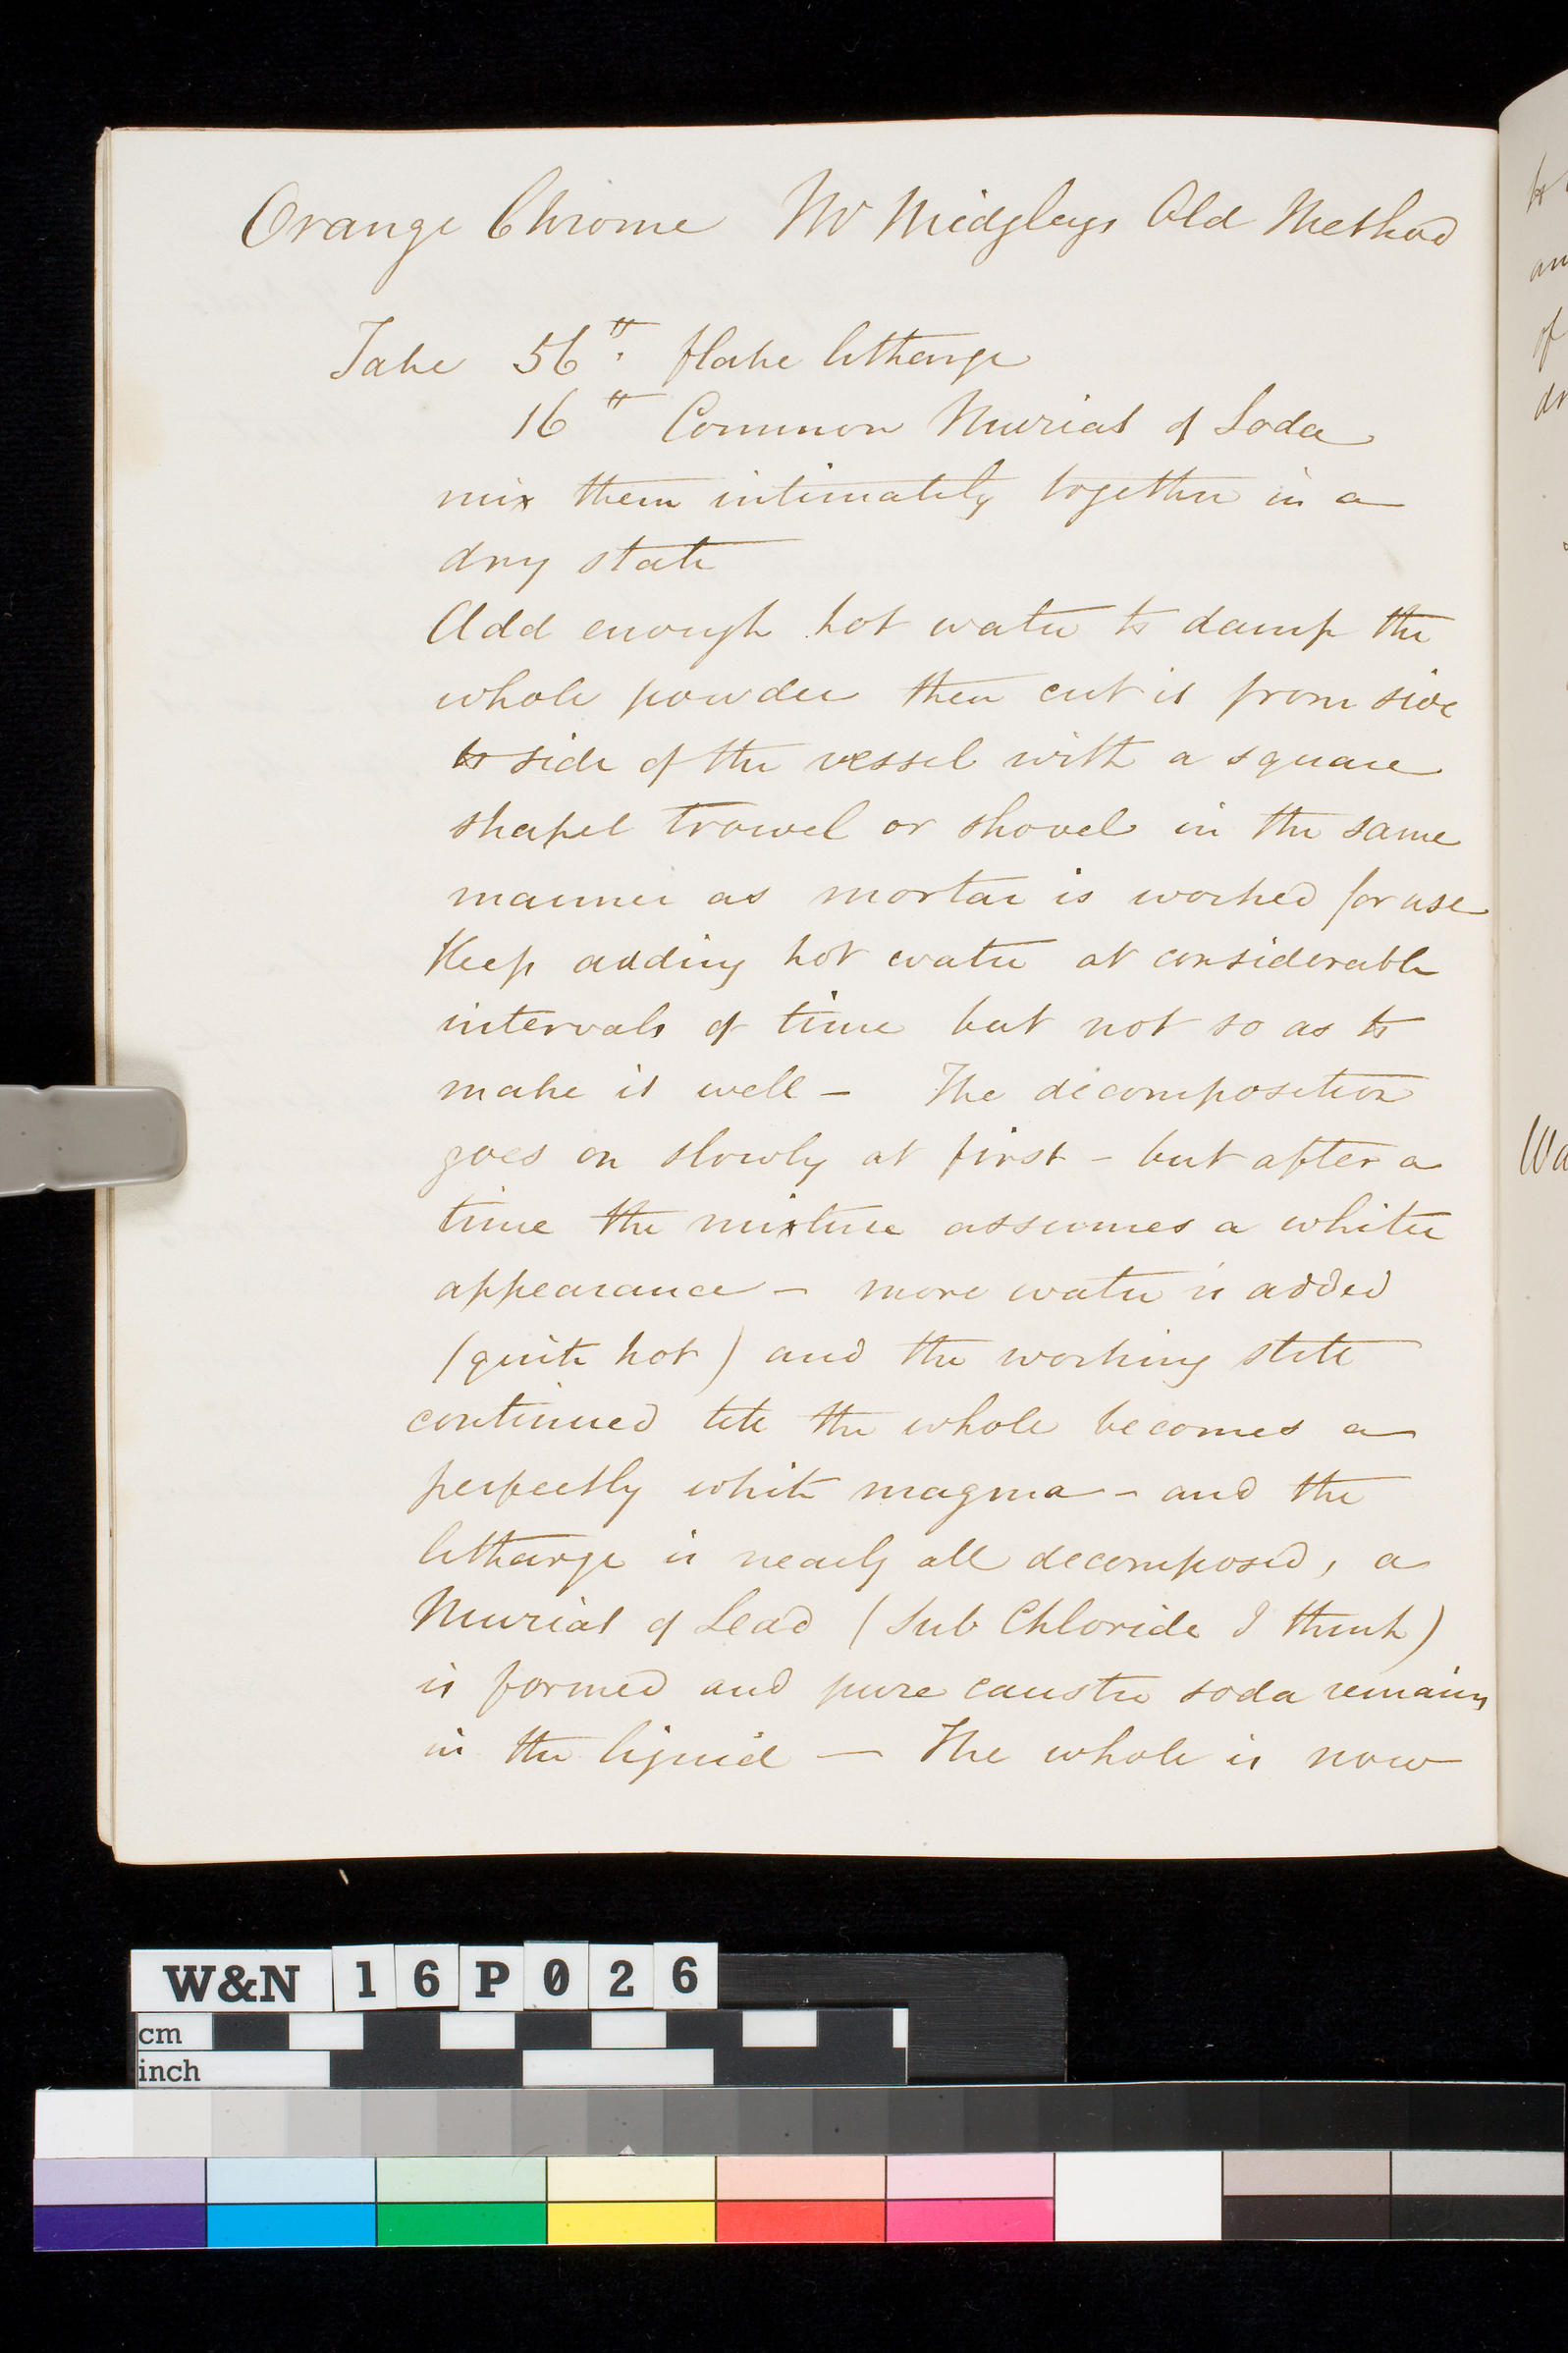 Orange Chrome Mr Midgleys Old Method
Take 56 lb. flake litharge
16 lb Common Muriat of Soda
mix them intimately together in a
dry state
Add enough hot water to damp the
whole powder then cut it from side
to side of the vessel with a square
shaped trowel or shovel in the same
manner as mortar is worked for use
Keep adding hot water at considerable
intervals of time but not so as to
make it well — The decomposition
goes on slowly at first — but after a
time the mixture assumes a whiter
appearance — more water is added
(quite hot) and the working
continued the whole becomes a
perfectly white magma — and the
litharge is nearly all decomposed, a
Muriat of Lead (Sub Chloride I think)
is formed and pure caustic soda remains
in the liquid — The whole is now
an
of
dr
Wa
W&N 16P026
cm
inch